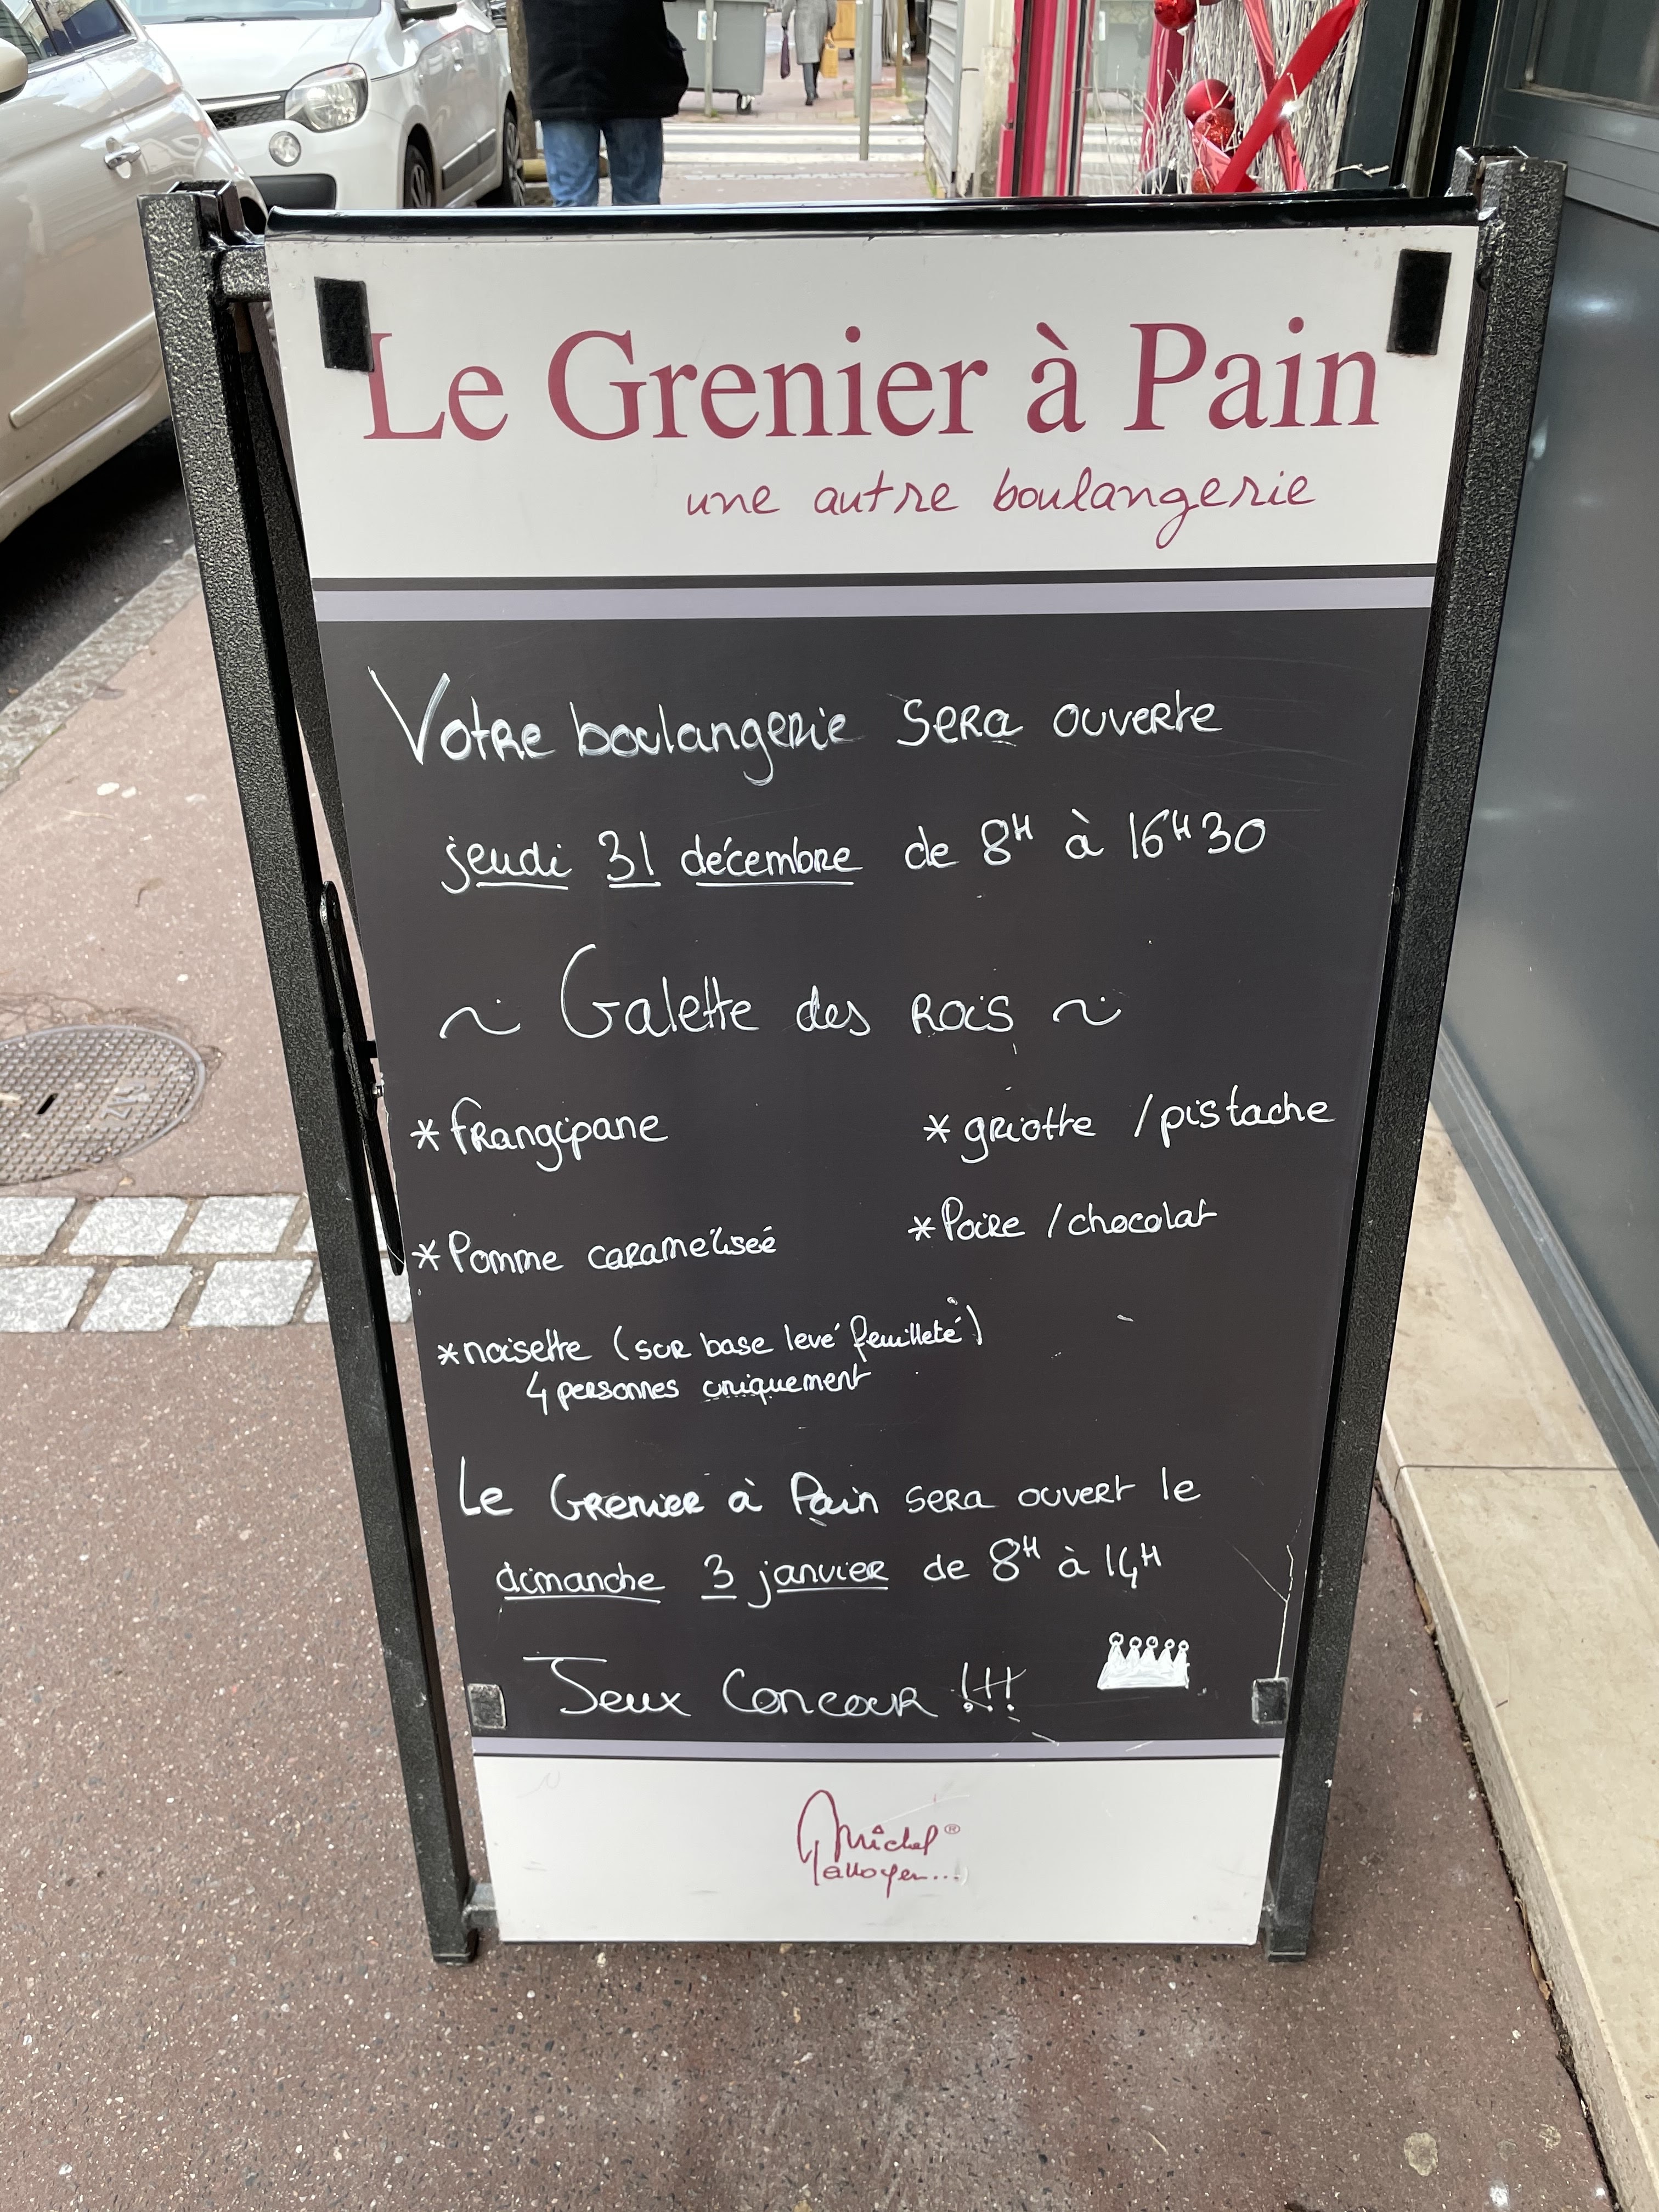 Le Grenier à Pain
une autre boulangerie
Votre boulangerie sera ouverte
jeudi 31 décembre de 8H à 16H30
~ Galette des Rois ~
* frangipane
* griotte / pistache
* Pomme caraméliseé
* Poire / chocolat
* noisette (sur base levé feuilleté)
4 personnes uniquement
Le Grenier à Pain sera ouvert le
dimanche 3 janvier de 8H à 14H
Jeux Concour !!!
Michel
Galloyer...